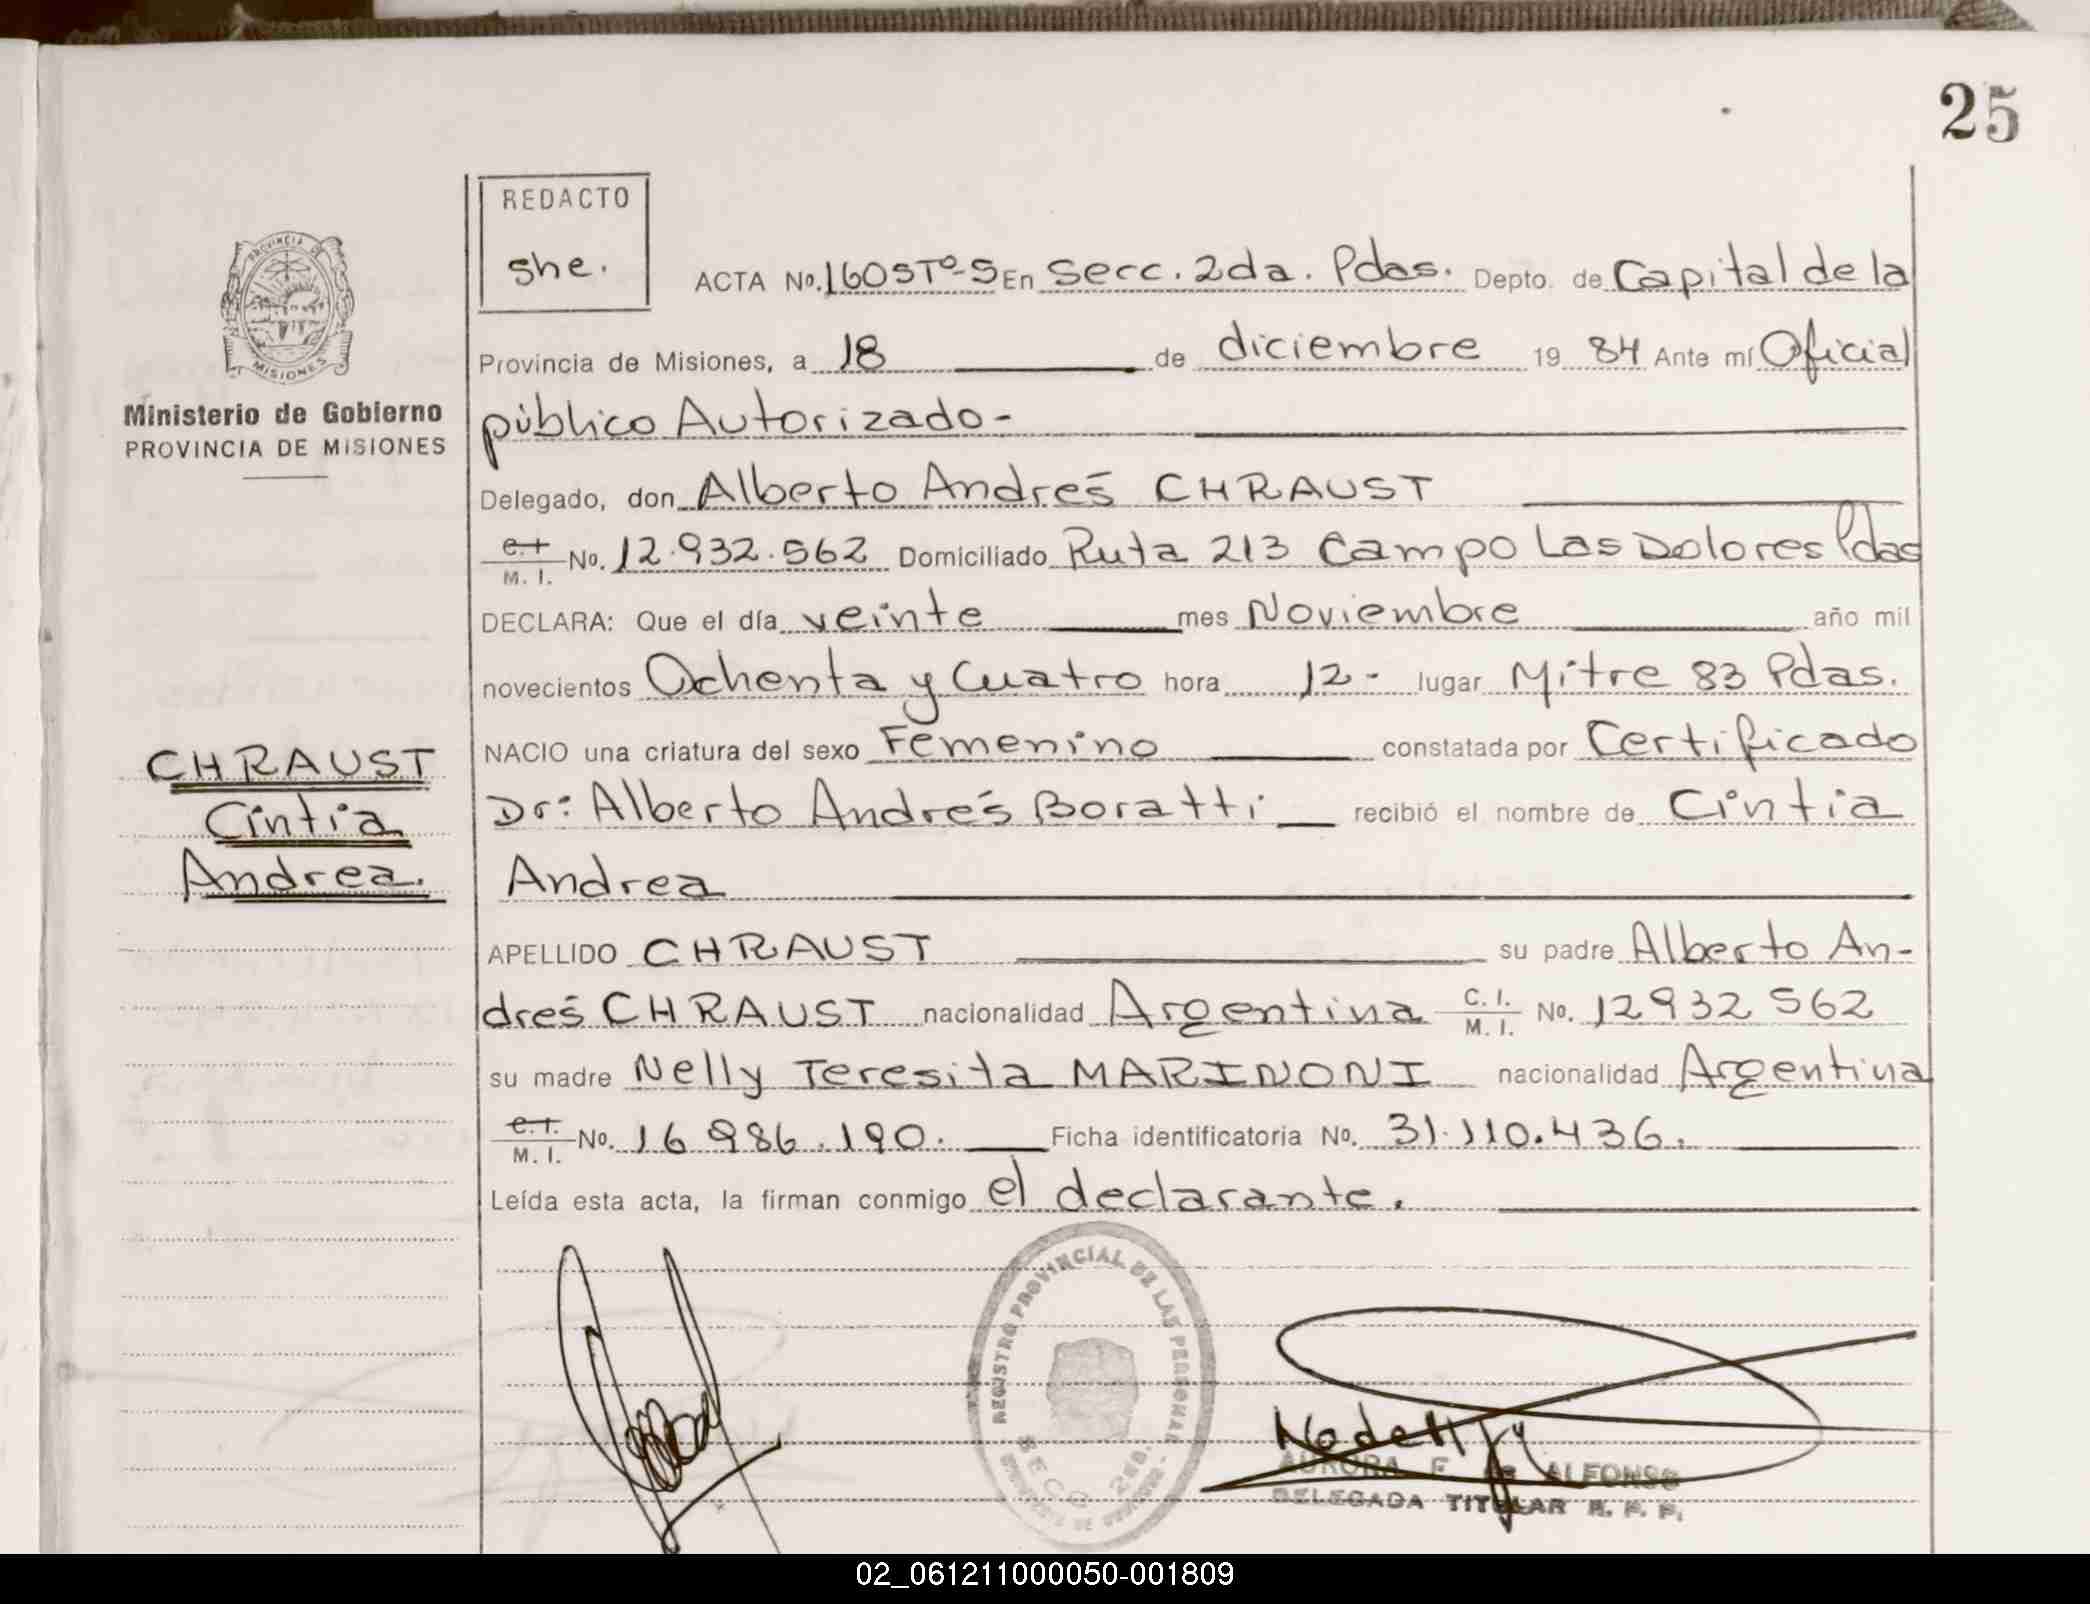 25
REDACTO
she.
ACTA No. 160 ST°-S En Secc. 2da. Pdas. Depto. de Capital de la
Provincia de Misiones, a 18 de diciembre 19 84 Ante mí Oficial
público Autorizado-
Delegado, don Alberto Andrés CHRAUST
M. I. No. 12.932.562 Domiciliado Ruta 213 Campo Las Dolores Pdas
DECLARA: Que el día veinte mes Noviembre año mil
novecientos Ochenta y Cuatro hora 12- lugar Mitre 83 Pdas.
NACIO una criatura del sexo Femenino constatada por Certificado
Dr: Alberto Andrés Boratti recibió el nombre de Cintia
Andrea
APELLIDO CHRAUST su padre Alberto An-
drés CHRAUST nacionalidad Argentina C. I. M. I. No. 12932562
su madre Nelly Teresita MARINONI nacionalidad Argentina
M. I. No. 16 986.190. Ficha identificatoria No. 31.110.436.
Leída esta acta, la firman conmigo el declarante.
PROVINCIA DE
MISIONES
Ministerio de Gobierno
PROVINCIA DE MISIONES
CHRAUST
Cintia
Andrea.
REGISTRO PROVINCIAL DE LAS PERSONAS
SECC. 2DA.
AURORA F. de ALFONSO
DELEGADA TITULAR R. P. P.
02_061211000050-001809